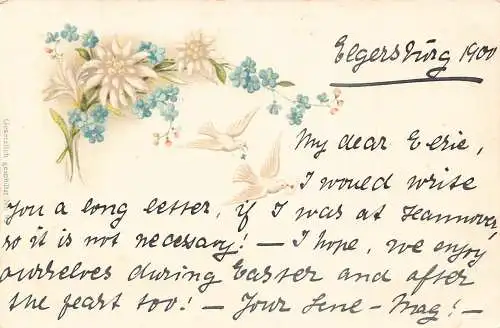 Elgersburg 1900
My dear Elsie,
I would write
you a long letter, if I was at Hannover,
so it is not necessary! — I hope, we enjoy
ourselves during Easter and after
the feast too! — Your Lene-Mag! —
Gesetzlich geschützt